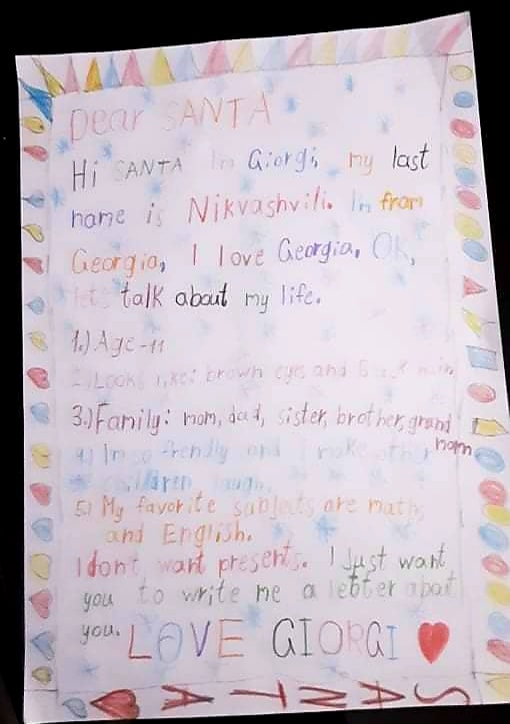 Dear SANTA
Hi SANTA Im Giorgi, my last
name is Nikvashvili. Im from
Georgia, I love Georgia. Ok,
lets talk about my life.
1.) Age-11
2.) Looks like: brown eyes and hair
3.) Family: mom, dad, sister, brother, grand
mom
4.) Im so frendly and I make other
children laugh.
5.) My favorite subjects are math
and English.
I dont want presents. I Just want
you to write me a letter about
you. LOVE GIORGI
SANTA